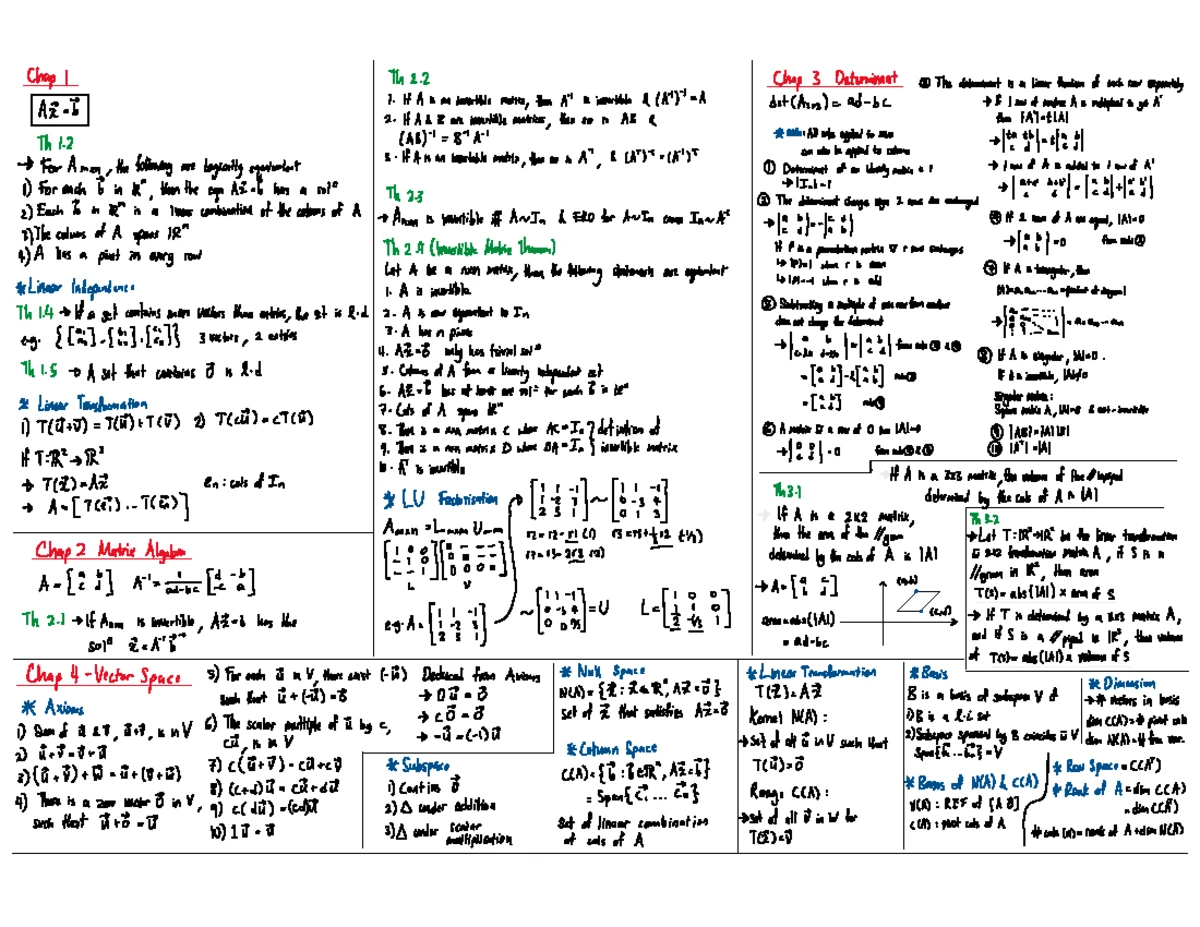 Chap 1
Ax⃗ = b⃗
Th 1.2
→ For Amxn, the following are logically equivalent
1) For each b⃗ in ℝᵐ, then the eqn Ax⃗=b⃗ has a solⁿ
2) Each b⃗ in ℝᵐ is a linear combination of the columns of A
3) The columns of A spans ℝᵐ
4) A has a pivot in every row
* Linear Independence
Th 1.4 → If a set contains more vectors than entries, the set is l.d
e.g. 3 vectors, 2 entries
Th 1.5 → A set that contains 0⃗ is l.d
* Linear Transformation
1) T(u⃗+v⃗) = T(u⃗)+T(v⃗) 2) T(cu⃗) = cT(u⃗)
If T:ℝ²→ℝ³
→ T(x⃗) = Ax⃗ en : cols of In
→ A = [T(e⃗₁) ... T(e⃗n)]
Chap 2 Matrix Algebra
A = [a b; c d] A⁻¹ = 1/(ad-bc) [d -b; -c a]
Th 2.1 → If Anxn is invertible, Ax⃗=b⃗ has the
solⁿ x⃗ = A⁻¹b⃗
Th 2.2
1. If A is an invertible matrix, then A⁻¹ is invertible & (A⁻¹)⁻¹ = A
2. If A & B are invertible matrices, then so is AB &
(AB)⁻¹ = B⁻¹A⁻¹
3. If A is an invertible matrix, then so is Aᵀ, & (Aᵀ)⁻¹ = (A⁻¹)ᵀ
Th 2.3
→ Anxn is invertible iff A~In & ERO for A~In cause In~A⁻¹
Th 2.4 (Invertible Matrix Theorem)
Let A be a nxn matrix, then the following statements are equivalent
1. A is invertible
2. A is row equivalent to In
3. A has n pivots
4. Ax⃗=0⃗ only has trivial solⁿ
5. Columns of A form a linearly independent set
6. Ax⃗=b⃗ has at least one solⁿ for each b⃗ in ℝⁿ
7. Cols of A spans ℝⁿ
8. There is a nxn matrix C where AC = In } definition of
9. There is a nxn matrix D where DA = In } invertible matrix
10. Aᵀ is invertible
* LU Factorisation
Amxn = Lmxm Umxn
L U
[1 1 -1; 1 -2 3; 2 3 1] ~ [1 1 -1; 0 -3 4; 0 1 3]
e.g. A = [1 1 -1; 1 -2 3; 2 3 1]
= U
Chap 3 Determinant
det(A2x2) = ad-bc
① Determinant of an identity matrix is 1
→ |In| = 1
② The determinant changes sign 2 rows are exchanged
→ |a b; c d| = -|c d; a b|
If P is a permutation matrix & r row exchanges
→ |P|=1 when r is even
→ |P|=-1 when r is odd
③ The determinant is a linear function of each row separately
→ If 1 row of matrix A is multiplied to get A'
then |A'| = t|A|
→ |ta tb; c d| = t|a b; c d|
→ 1 row of A is added to 1 row of A'
④ If 2 rows of A are equal, |A|=0
→ |a b; a b| = 0
⑤ Subtracting a multiple of one row from another
does not change the determinant
⑥ A matrix with a row of 0 has |A|=0
→ |0 0; c d| = 0
⑦ If A is triangular, then
⑧ If A is singular, |A|=0.
If A is invertible, |A|≠0
Singular matrix:
Square matrix A, |A|=0 & not invertible
⑨ |AB| = |A||B|
⑩ |Aᵀ| = |A|
Th 3.1
→ If A is a 2x2 matrix,
then the area of the //gram
determined by the cols of A is |A|
→ A = [a c; b d]
area = abs(|A|)
= ad-bc
(a,b)
(c,d)
If A is a 3x3 matrix, the volume of the //epiped
determined by the cols of A is |A|
Th 3.2
→ Let T:ℝ²→ℝ² be the linear transformation
2x2 transformation matrix A, if S is a
//gram in ℝ², then area
T(S) = abs(|A|) x area of S
→ If T is determined by a 3x3 matrix A,
and if S is a //piped in ℝ³, then volume
of T(S) = abs(|A|) x volume of S
Chap 4 - Vector Space
* Axioms
1) Sum of u⃗ & v⃗, u⃗+v⃗, is in V
2) u⃗+v⃗ = v⃗+u⃗
3) (u⃗+v⃗)+w⃗ = u⃗+(v⃗+w⃗)
4) There is a zero vector 0⃗ in V,
such that u⃗+0⃗ = u⃗
5) For each u⃗ in V, there exist (-u⃗)
such that u⃗+(-u⃗) = 0⃗
6) The scalar multiple of u⃗ by c,
cu⃗, is in V
7) c(u⃗+v⃗) = cu⃗+cv⃗
8) (c+d)u⃗ = cu⃗+du⃗
9) c(du⃗) = (cd)u⃗
10) 1u⃗ = u⃗
Deduced from Axioms
→ 0u⃗ = 0⃗
→ c0⃗ = 0⃗
→ -u⃗ = (-1)u⃗
* Subspace
1) Contains 0⃗
2) △ under addition
3) △ under scalar
multiplication
* Null Space
N(A) = {x⃗ : x⃗∈ℝⁿ, Ax⃗=0⃗}
Set of x⃗ that satisfies Ax⃗=0⃗
* Column Space
C(A) = {b⃗ : b⃗∈ℝᵐ, Ax⃗=b⃗}
= Span{c⃗₁ ... c⃗n}
Set of linear combination
of cols of A
* Linear Transformation
T(x⃗) = Ax⃗
Kernel N(A) :
→ Set of all u⃗ in V such that
T(u⃗) = 0⃗
Range C(A) :
→ Set of all v⃗ in W for
T(x⃗) = v⃗
* Basis
B is a basis of subspace V if
1) B is a l.i set
2) Subspace spanned by B coincides w V
Span{b⃗₁ ... b⃗n} = V
* Basis of N(A) & C(A)
N(A) : REF of [A 0⃗]
C(A) : pivot cols of A
* Dimension
→ # vectors in basis
dim C(A) = # pivot cols
dim N(A) = # free var.
* Row Space = C(Aᵀ)
* Rank of A = dim C(A)
= dim C(Aᵀ)
# cols (n) = rank of A + dim N(A)